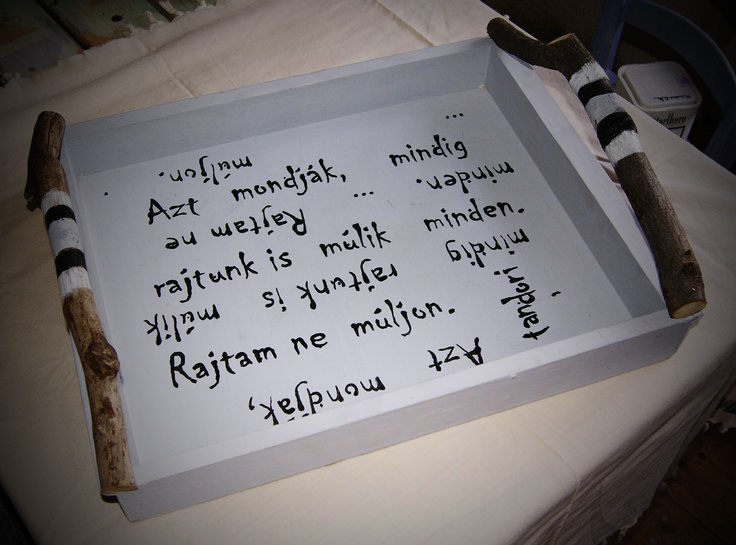 Azt mondják, mindig ...
rajtunk is múlik minden.
Rajtam ne múljon.
Azt mondják,
mindig rajtunk is múlik
minden. ... Rajtam ne
múljon.
tandori